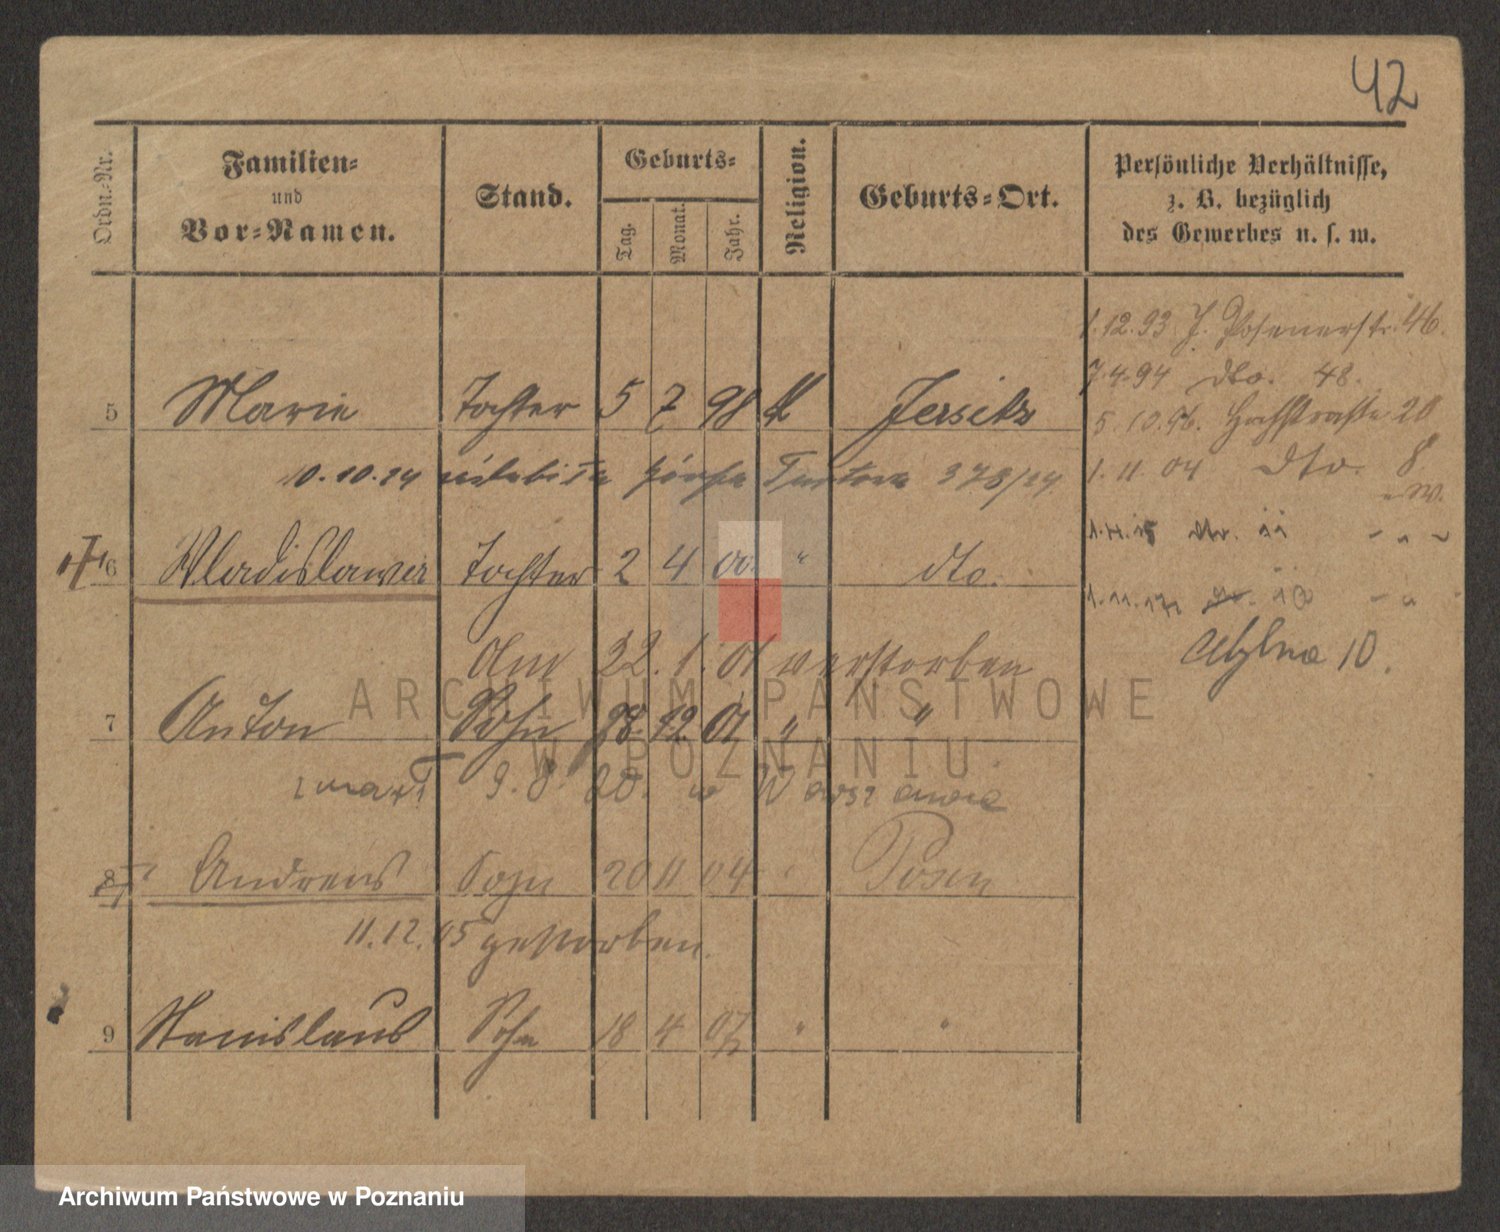 42
Ordn.-Nr.
Familien-
und
Vor-Namen.
Stand.
Geburts-
Tag.
Monat.
Jahr.
Religion.
Geburts-Ort.
Persönliche Verhältnisse,
z. B. bezüglich
des Gewerbes u. s. w.
1.12.93 J. Posenerstr. 46.
7.4.94 dto. 48.
5 Marie Tochter 5 7 98 k Jersitz
5.10.96. 20
10.10.24 378/24
1.11.04 dto. 8
6 Wladislawa Tochter 2 4 00. " dto.
Am 22.1.01 verstorben
10.
7 Anton Sohn 12 01 " "
zmarł 9.8. 20. w Warszawie
8 Andreas Sohn 20 11 04 " Posen
11.12.05 gestorben.
9 Stanislaus Sohn 18 4 07 " "
ARCHIWUM PAŃSTWOWE
W POZNANIU
Archiwum Państwowe w Poznaniu